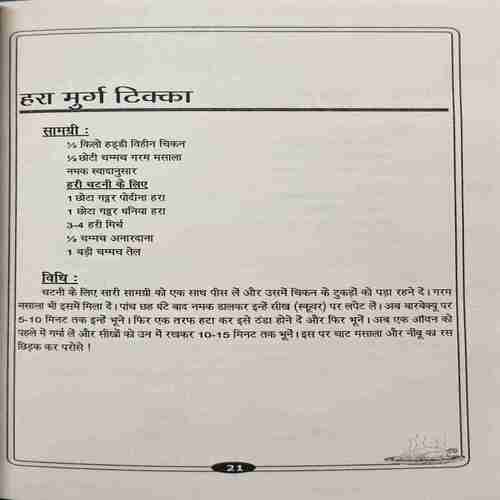 हरा मुर्ग टिक्का
सामग्री :
½ किलो हड्डी विहीन चिकन
½ छोटी चम्मच गरम मसाला
नमक स्वादानुसार
हरी चटनी के लिए
1 छोटा गट्ठर पोदीना हरा
1 छोटा गट्ठर धनिया हरा
3-4 हरी मिर्च
½ चम्मच अनारदाना
1 बड़ी चम्मच तेल
विधि :
चटनी के लिए सारी सामग्री को एक साथ पीस लें और उसमें चिकन के टुकड़ों को पड़ा रहने दें। गरम
मसाला भी इसमें मिला दें। पांच छह घंटे बाद नमक डालकर इन्हें सीख (स्कूवर) पर लपेट लें। अब बारबेक्यू पर
5-10 मिनट तक इन्हें भूनें। फिर एक तरफ हटा कर इसे ठंडा होने दें और फिर भूनें। अब एक ऑवन को
पहले में गर्मा लें और सीखों को उन में रखकर 10-15 मिनट तक भूनें। इस पर चाट मसाला और नींबू का रस
छिड़क कर परोसे !
21